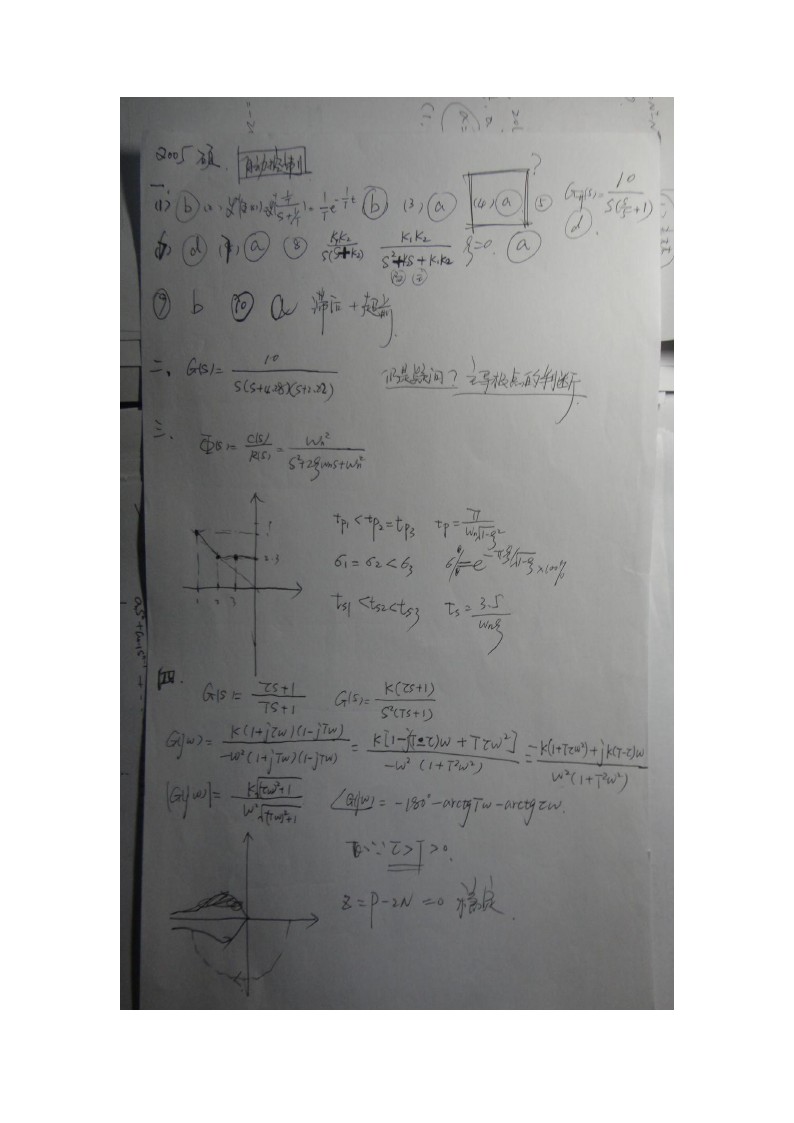 2005 硕. 自动控制
一、
(1) ⓑ (2) ⓑ (3) ⓐ (4) ⓐ ? ⑤ G(s)= 10 / s(s/5+1) ⓓ.
ⓓ ⓐ ⑧ K₁K₂ / s(s+K₂) K₁K₂ / s²+ s+K₁K₂ ξ=0. ⓐ
⑨ b ⑩ a 滞后+超前
二、 G(s)= 10 / s(s+4.28)(s+2.22) 仍是疑问? 主导极点的判断
三.
Φ(s)= C(s)/R(s) = Wn² / s²+2ξwns+wn²
tp₁<tp₂=tp₃ tp= π / wn√1-ξ²
2.3
σ₁=σ₂<σ₃ σ%=e^-πξ/√1-ξ ×100%
1 2 3
ts₁<ts₂<ts₃ ts= 3.5 / wnξ
四.
G(s)= τs+1 / Ts+1 G(s)= K(τs+1) / s²(Ts+1)
G(jw)= K(1+jτw)(1-jTw) / -w²(1+jTw)(1-jTw) = K[1-j(T-τ)w+Tτw²] / -w²(1+T²w²) = -K(1+Tτw²)+jK(T-τ)w / w²(1+T²w²)
|G(jw)|= K√τw²+1 / w²√(Tw)²+1 ∠G(jw) = -180°-arctgTw-arctgτw.
∵ τ>T>0.
Z=P-2N=0 稳定.